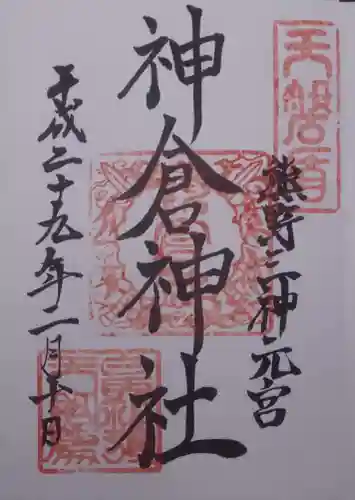 天磐盾
熊野三神元宮
神倉神社
平成二十九年二月十日